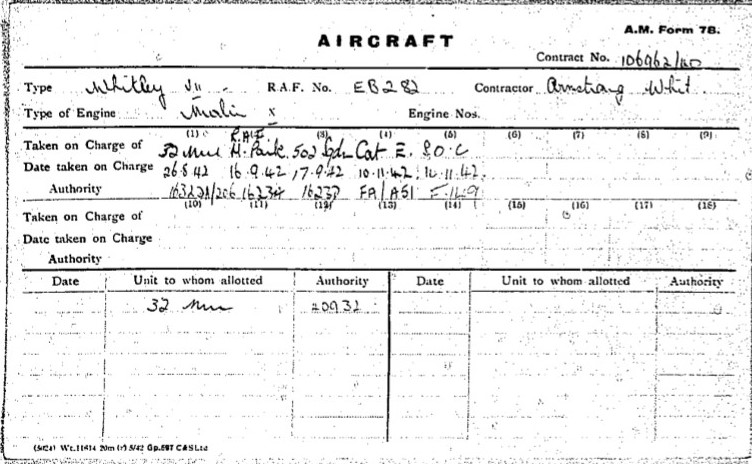 A.M. Form 78.
AIRCRAFT
Contract No. 106962/40
Type Whitley VII R.A.F. No. EB282 Contractor Armstrong Whit.
Type of Engine Merlin X Engine Nos.
(1) (3) (4) (5) (6) (7) (8) (9)
R.A.E
Taken on Charge of 32 Mu H. Park. 502 Sqdn Cat E. S.O.C
Date taken on Charge 26.8.42 16.9.42 17.9.42 10.11.42. 14.11.42.
Authority 16234 FA/A51
(10) (11) (12) (13) (14) (15) (16) (17) (18)
Taken on Charge of
Date taken on Charge
Authority
Date Unit to whom allotted Authority Date Unit to whom allotted Authority
32 Mu 20932
Wt.11814 20m 5/42 Gp.697 C&S Ltd